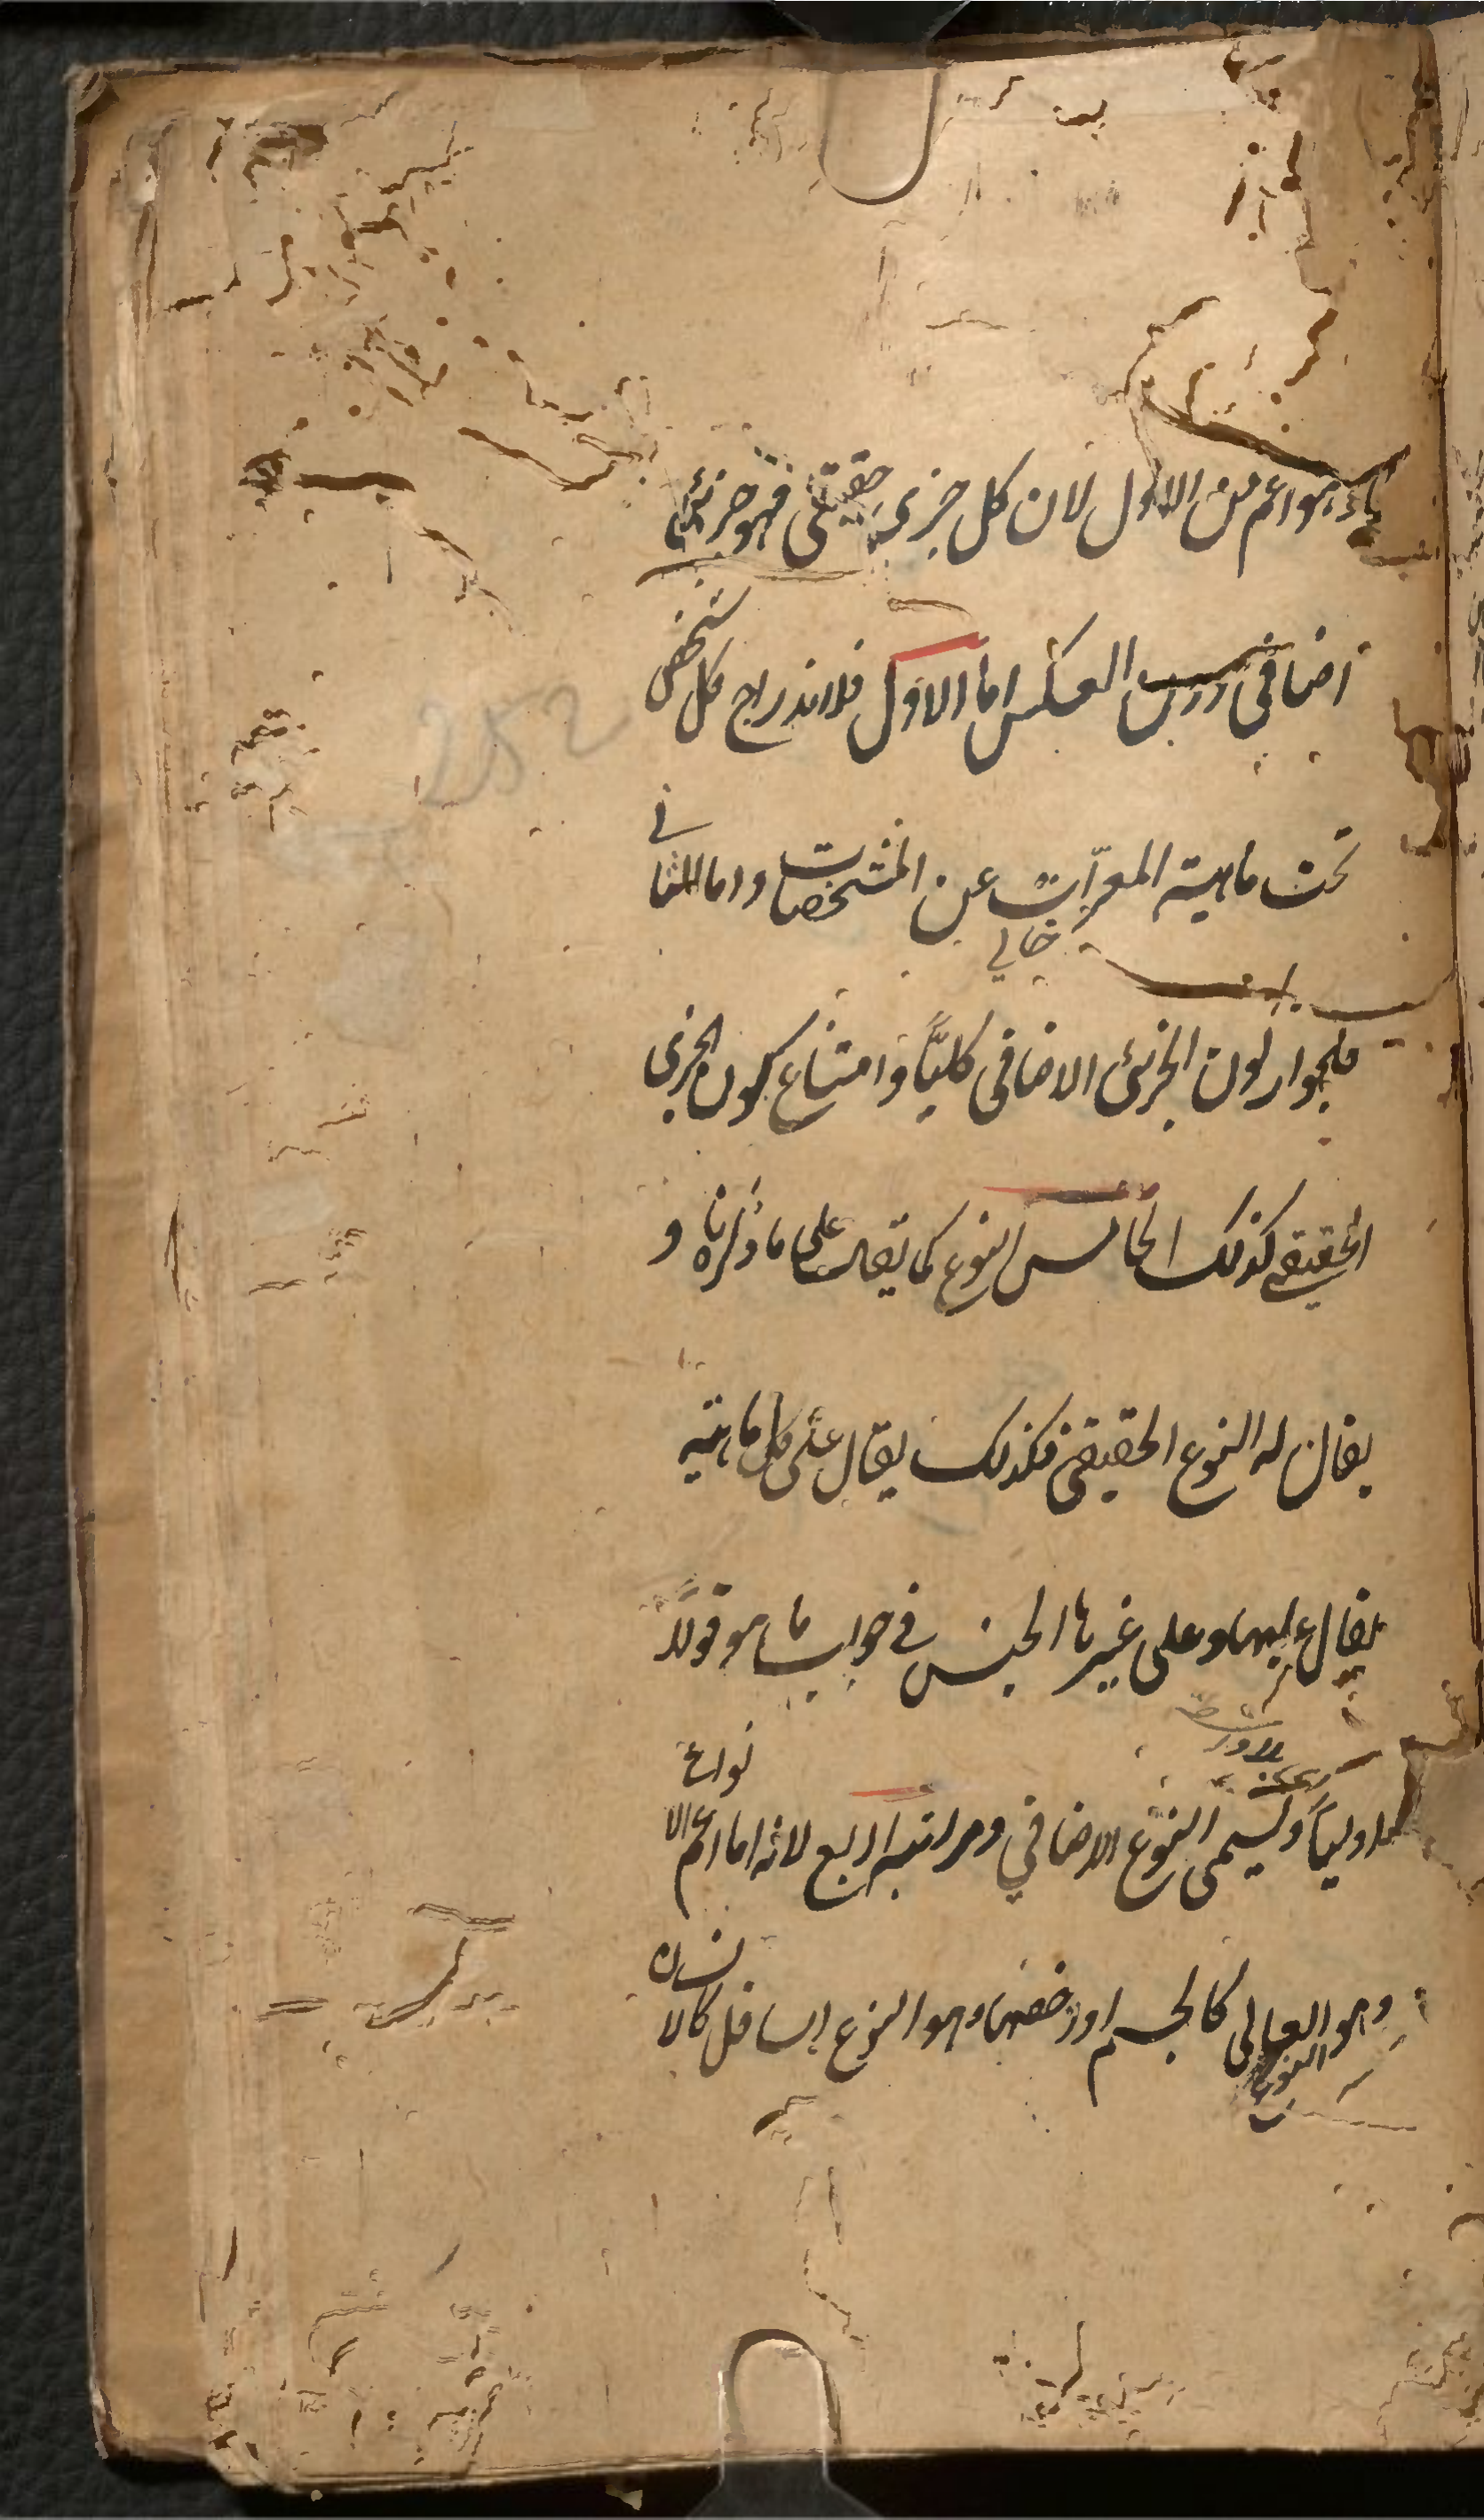 وهو اعم من الاول لان كل جزئى حقيقى فهو جزئى
اضافى دون العكس اما الاول فلاندراج كل شخص
تحت ماهية المعرّاة عن المشخصات واما الثانى
خالى
فلجواز كون الجزئى الاضافى كليًا وامتناع كون الجزى
الحقيقى كذلك الخامس النوع كما يقال على ما ذكرناه و
يقال له النوع الحقيقى فكذلك يقال على كل ماهية
يقال عليها وعلى غيرها الجنس فى جواب ما هو قولًا
اوليًا ويسمى النوع الاضافي ومراتبه اربع لانه اما اعم الانواع
وهو العالى كالجسم او اخصها وهو النوع السافل كالانسان
النوع
252